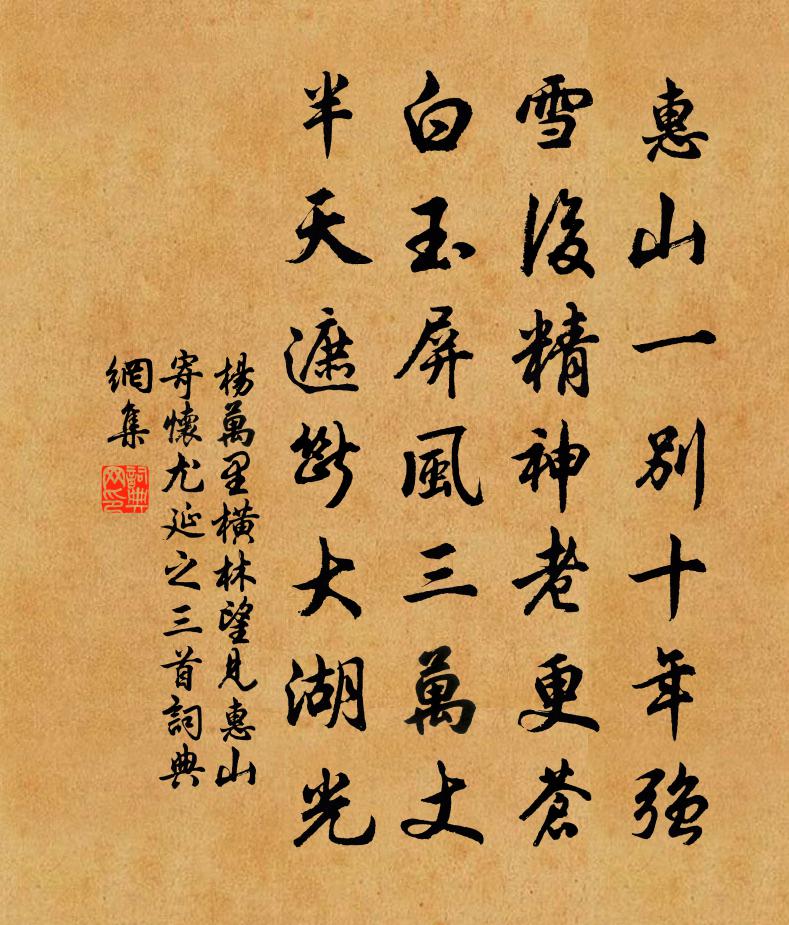 惠山一別十年強
雪後精神老更蒼
白玉屏風三萬丈
半天遮斷大湖光
楊萬里橫林望見惠山
寄懷尤延之三首詞典
網集
詞典
网印